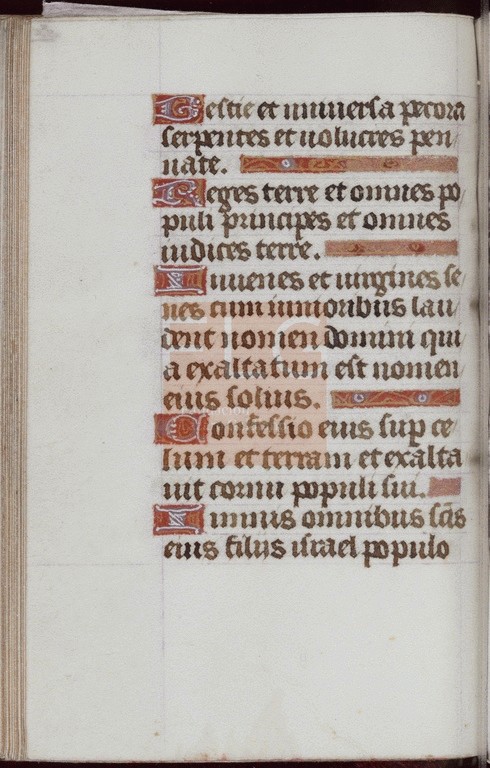 Bestie et universa pecora
serpentes et volucres pen
nate.
Reges terre et omnes po
puli principes et omnes
iudices terre.
Iuvenes et virgines se
nes cum iunioribus lau
dent nomen domini qui
a exaltatum est nomen
eius solius.
Confessio eius sup ce
lum et terram et exalta
vit cornu populi sui.
Imnus omnibus scis
eius filiis israel populo